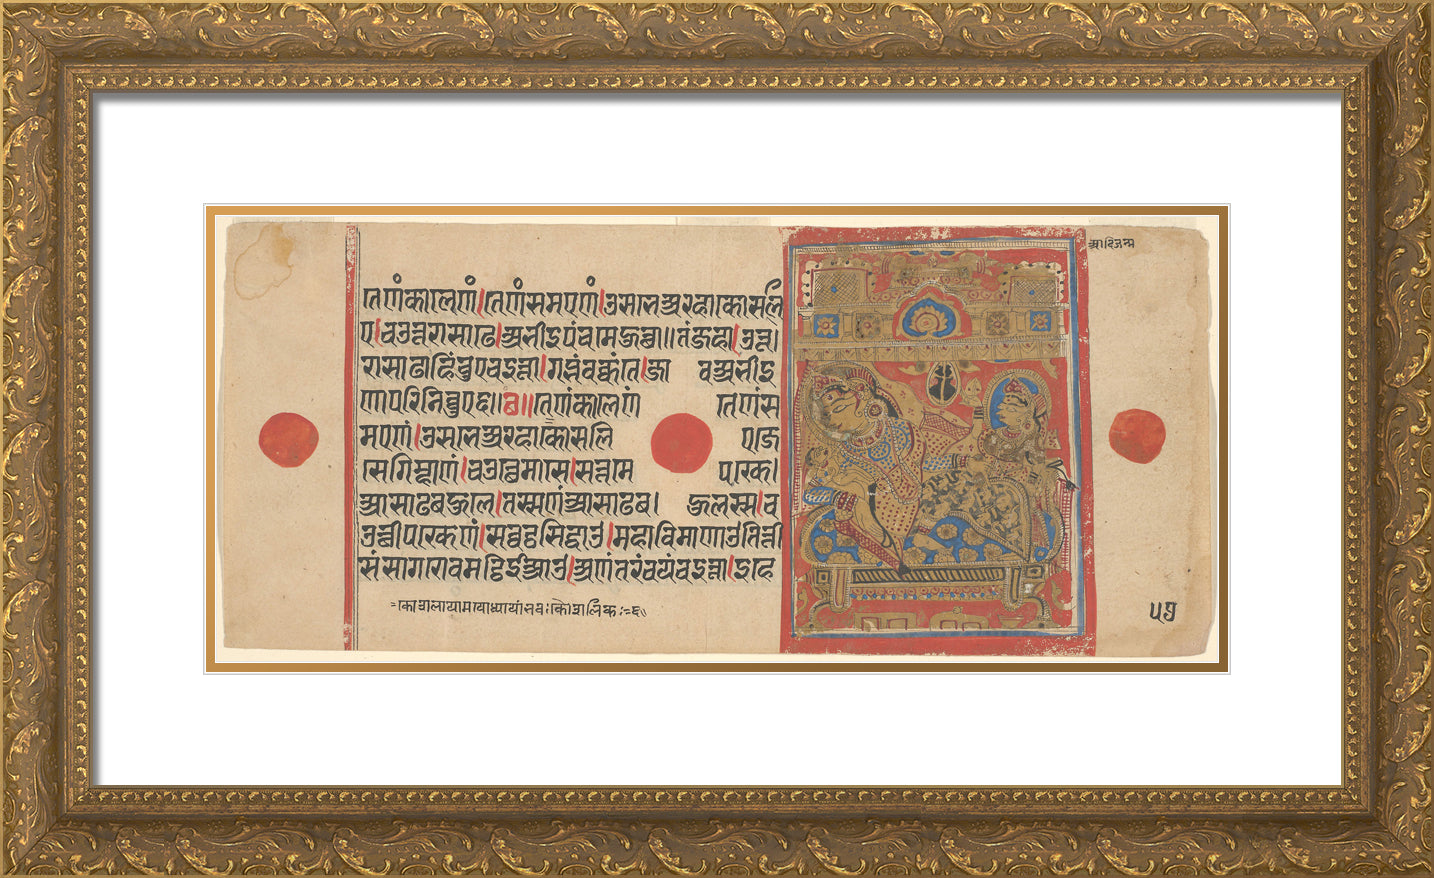 तेणंकालेणं।तेणंसमएणं।उसभेअरहाकोसलि
ए।चउउत्तरासाढे।अभीइपंचमेहुत्था॥तंजहा।उत्त
रासाढाहिंचुएचइत्ता।गब्भंवक्कंते।जा वअभीइ
णापरिनिव्वुए॥छ॥तेणंकालेणं तेणंस
मएणं।उसभेअरहाकोसलि एजे
सेगिम्हाणं।चउत्थेमासे।सत्तमे पक्खे।
आसाढबहुले।तस्सणंआसाढब। हुलस्स।च
उत्थीपक्खेणं।सव्वट्ठसिद्धाउ।महाविमाणाउतित्ती
संसागरोवमट्ठिईआउ।अणंतरंचयंचइत्ता।इहे
कोशलायामयोध्यायांभवःकौशलिकः ६
आदिजन्म
५७